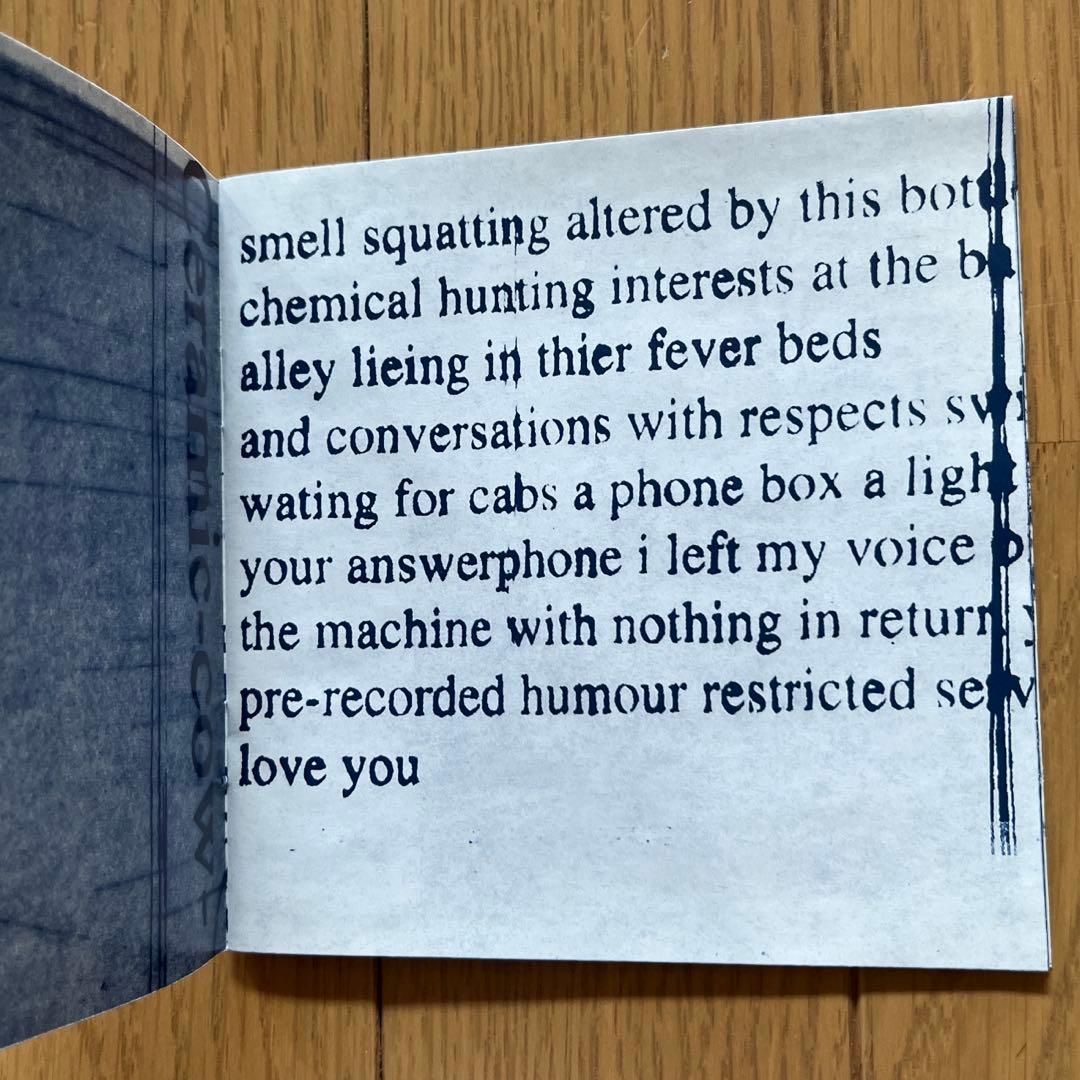 smell squatting altered by this
chemical hunting interests at the
alley lieing in thier fever beds
and conversations with respects
wating for cabs a phone box a light
your answerphone i left my voice
the machine with nothing in return
pre-recorded humour restricted
love you